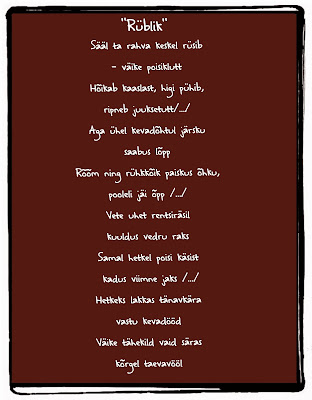 "Rüblik"
Sääl ta rahva keskel rüsib
- väike poisiklutt
Hõikab kaaslast, higi pühib,
ripneb juuksetutt/.../
Aga ühel kevadõhtul järsku
saabus lõpp
Rõõm ning rühkkõik paiskus õhku,
pooleli jäi õpp /.../
Vete uhet rentsiräsil
kuuldus vedru raks
Samal hetkel poisi käsist
kadus viimne jaks /.../
Hetkeks lakkas tänavkära
vastu kevadööd
Väike tähekild vaid säras
kõrgel taevavööl